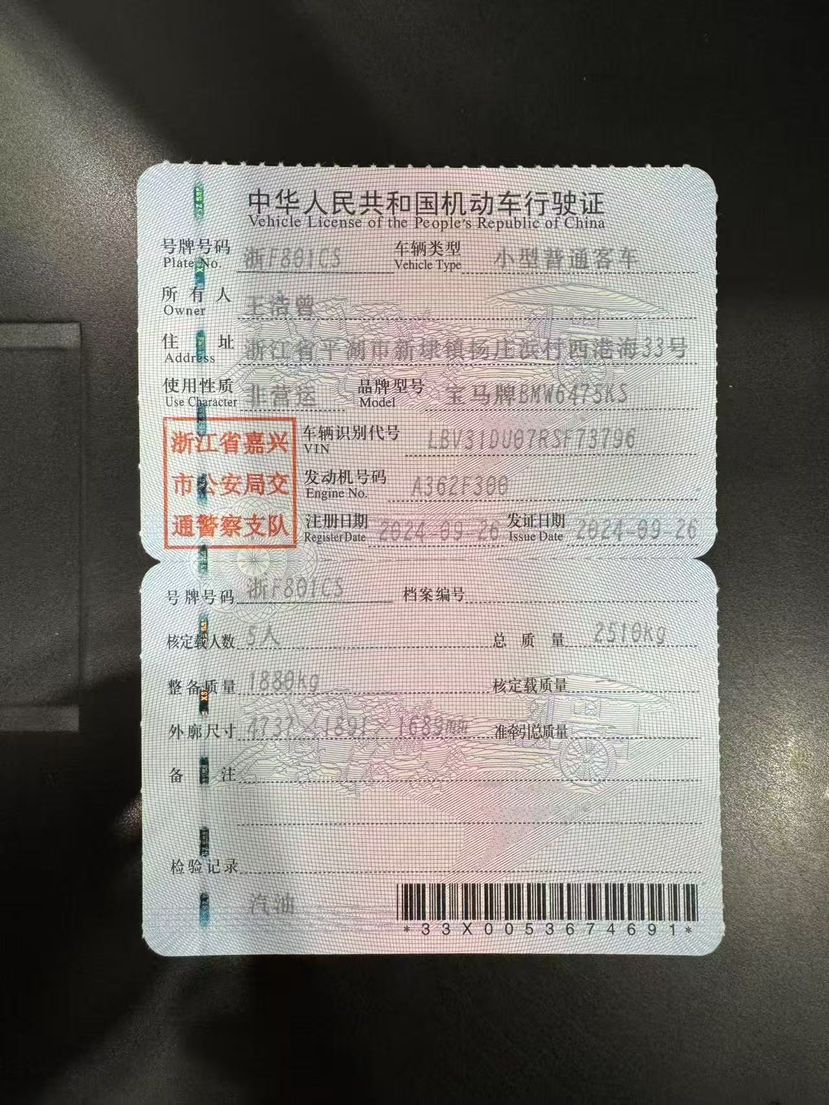 中华人民共和国机动车行驶证
Vehicle License of the People's Republic of China
号牌号码 浙F801CS 车辆类型 小型普通客车
Plate No. Vehicle Type
所有人 王浩曾
Owner
住址 浙江省平湖市新埭镇杨庄浜村西港海33号
Address
使用性质 非营运 品牌型号 宝马牌BMW6475KS
Use Character Model
浙江省嘉兴
市公安局交
通警察支队
车辆识别代号 LBV31DU07RSF73796
VIN
发动机号码 A362F300
Engine No.
注册日期 2024-09-26 发证日期 2024-09-26
Register Date Issue Date
号牌号码 浙F801CS 档案编号
核定载人数 5人 总质量 2510kg
整备质量 1880kg 核定载质量
外廓尺寸 4737×1891×1689mm 准牵引总质量
备注
检验记录
汽油
*33X0053674691*